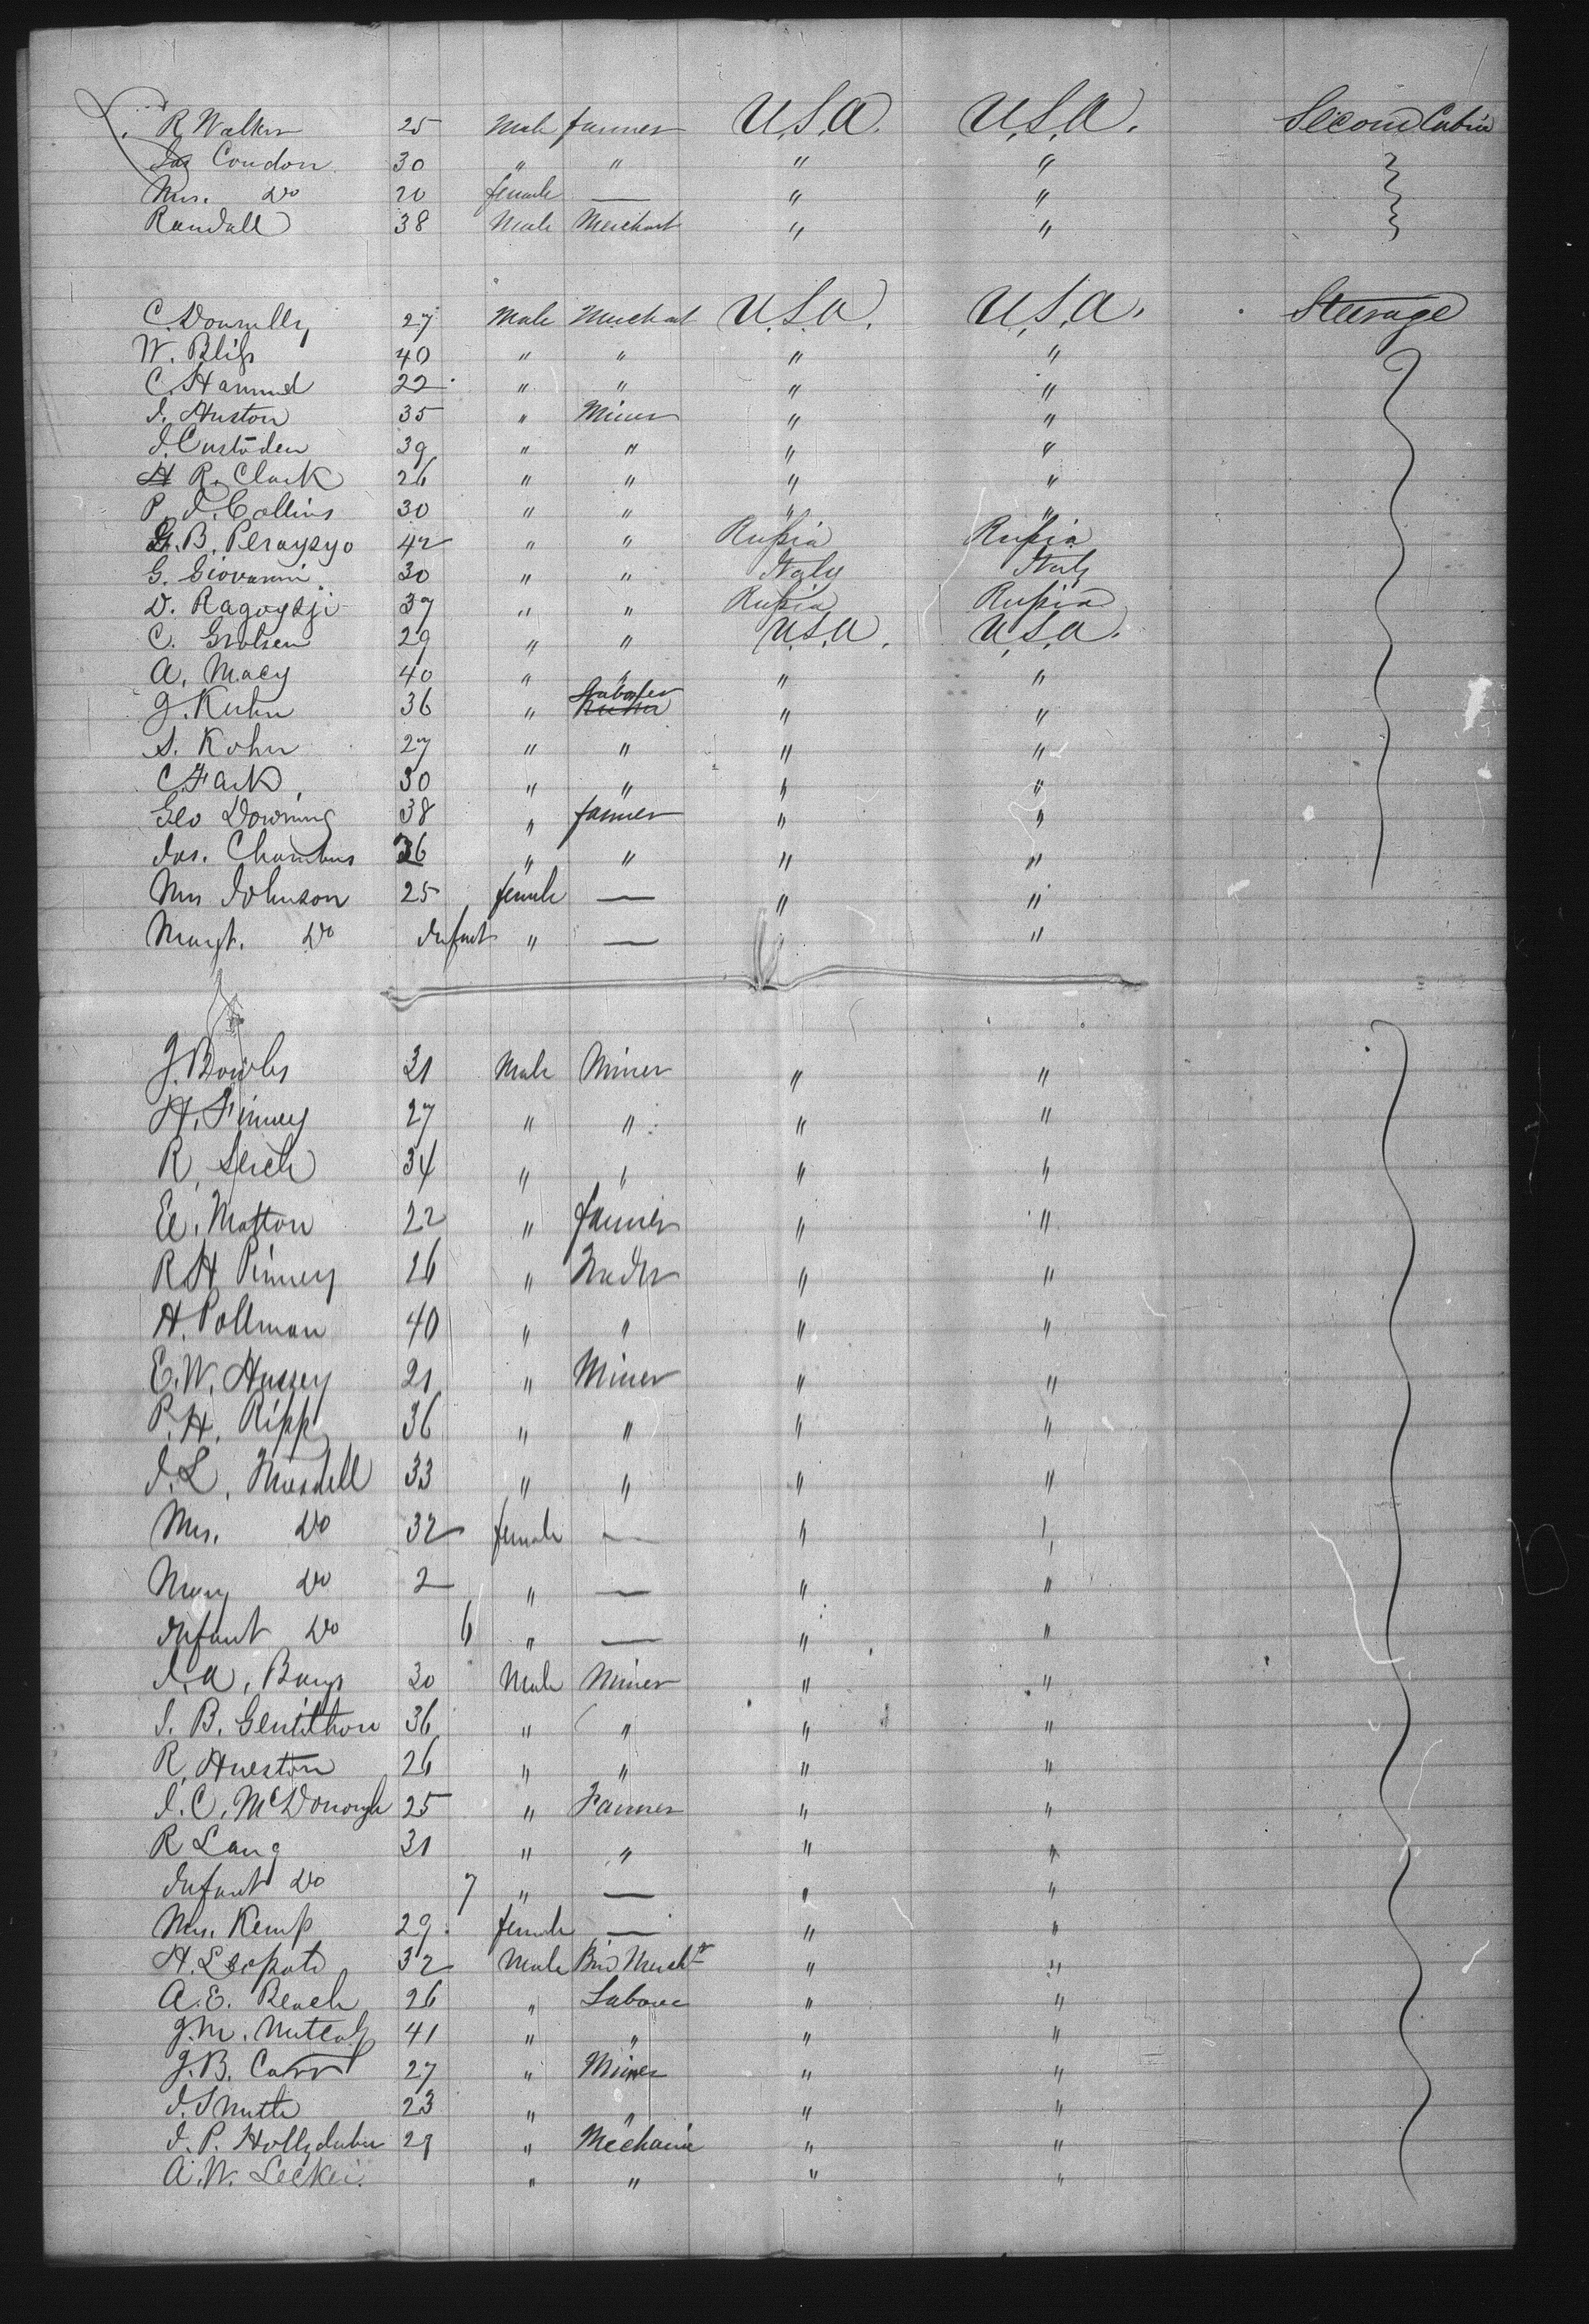 R Walker 25 Male farmer U.S.A. U.S.A. Second Cabin
Jas Condon 30 " " " "
Mrs. Do 20 female — " "
Randall 38 Male Merchant " "
C. Donnelly 27 Male Merchant U.S.A. U.S.A. Steerage
W. Bliss 40 " " " "
C. Hammd 22 " " " "
J. Huston 35 " Miner " "
J. Custoden 39 " " " "
H R. Clark 26 " " " "
P. J. Collins 30 " " " "
G. B. Peraysyo 42 " " Russia Russia
G. Giovanni 30 " " Italy Italy
D. Ragoysji 37 " " Russia Russia
C. Grolsen 29 " " U.S.A. U.S.A.
A. Macy 40 " " " "
J. Kuhn 36 " Laborer " "
S. Kohn 27 " " " "
C. Fark 30 " " " "
Geo Downing 38 " farmer " "
Jas. Chambers 36 " " " "
Mrs Johnson 25 female — " "
Margt. Do Infant " — " "
J. Bowles 21 Male Miner " "
H. Finney 27 " " " "
R. 34 " " " "
E. Matton 22 " farmer " "
R H Pinney 26 " Trader " "
H. Pollman 40 " " " "
E. W. Hussey 21 " Miner " "
P. H. Ripp 36 " " " "
J. L. Trusdell 33 " " " "
Mrs. Do 32 female — " "
Mary Do 2 " — " "
Infant Do 6 " — " "
J. A. Bays 30 Male Miner " "
S. B. Gentithon 36 " " " "
R. Hueston 26 " " " "
J. C. McDonough 25 " Farmer " "
R Lang 31 " " " "
Infant Do 7 " — " "
Mrs. Kemp 29 female — " "
H. 32 Male Mercht " "
A. E. Beach 26 " Laborer " "
J. M. Metcalf 41 " " " "
J. B. Carr 27 " Miner " "
J. Smith 23 " " " "
J. P. 29 " Mechanic " "
A. W. Leckei. " " " "